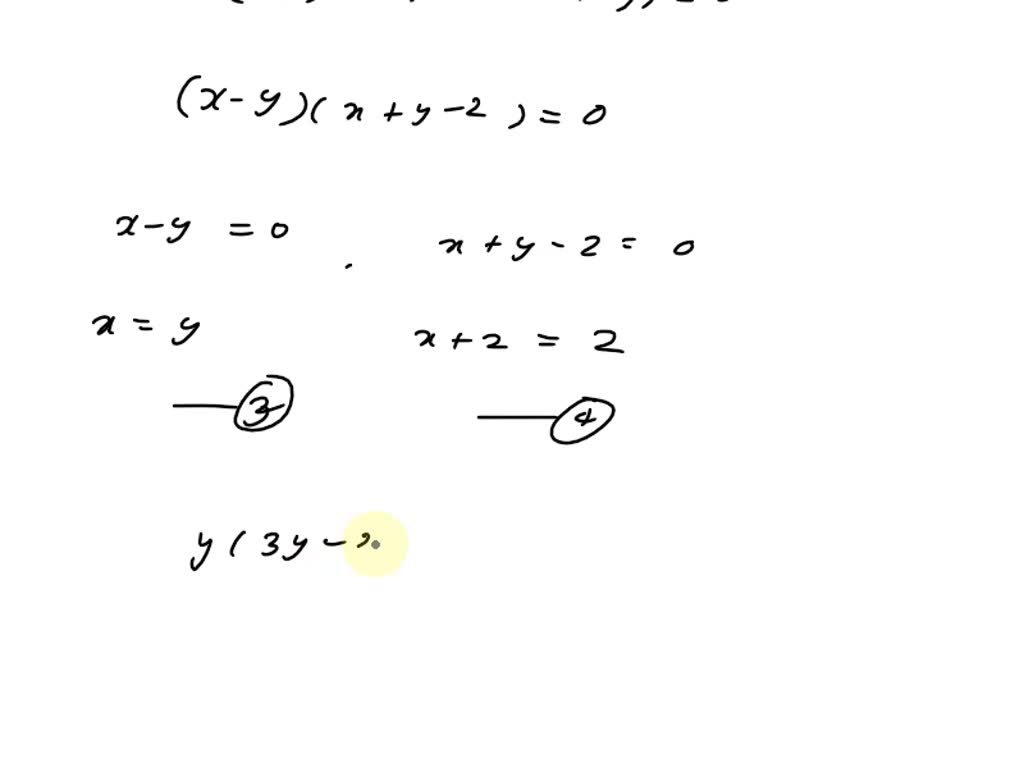 (x-y)(x+y-2)=0
x-y =0
x+y-2= 0
x= y
x+2 = 2
3
4
y(3y-